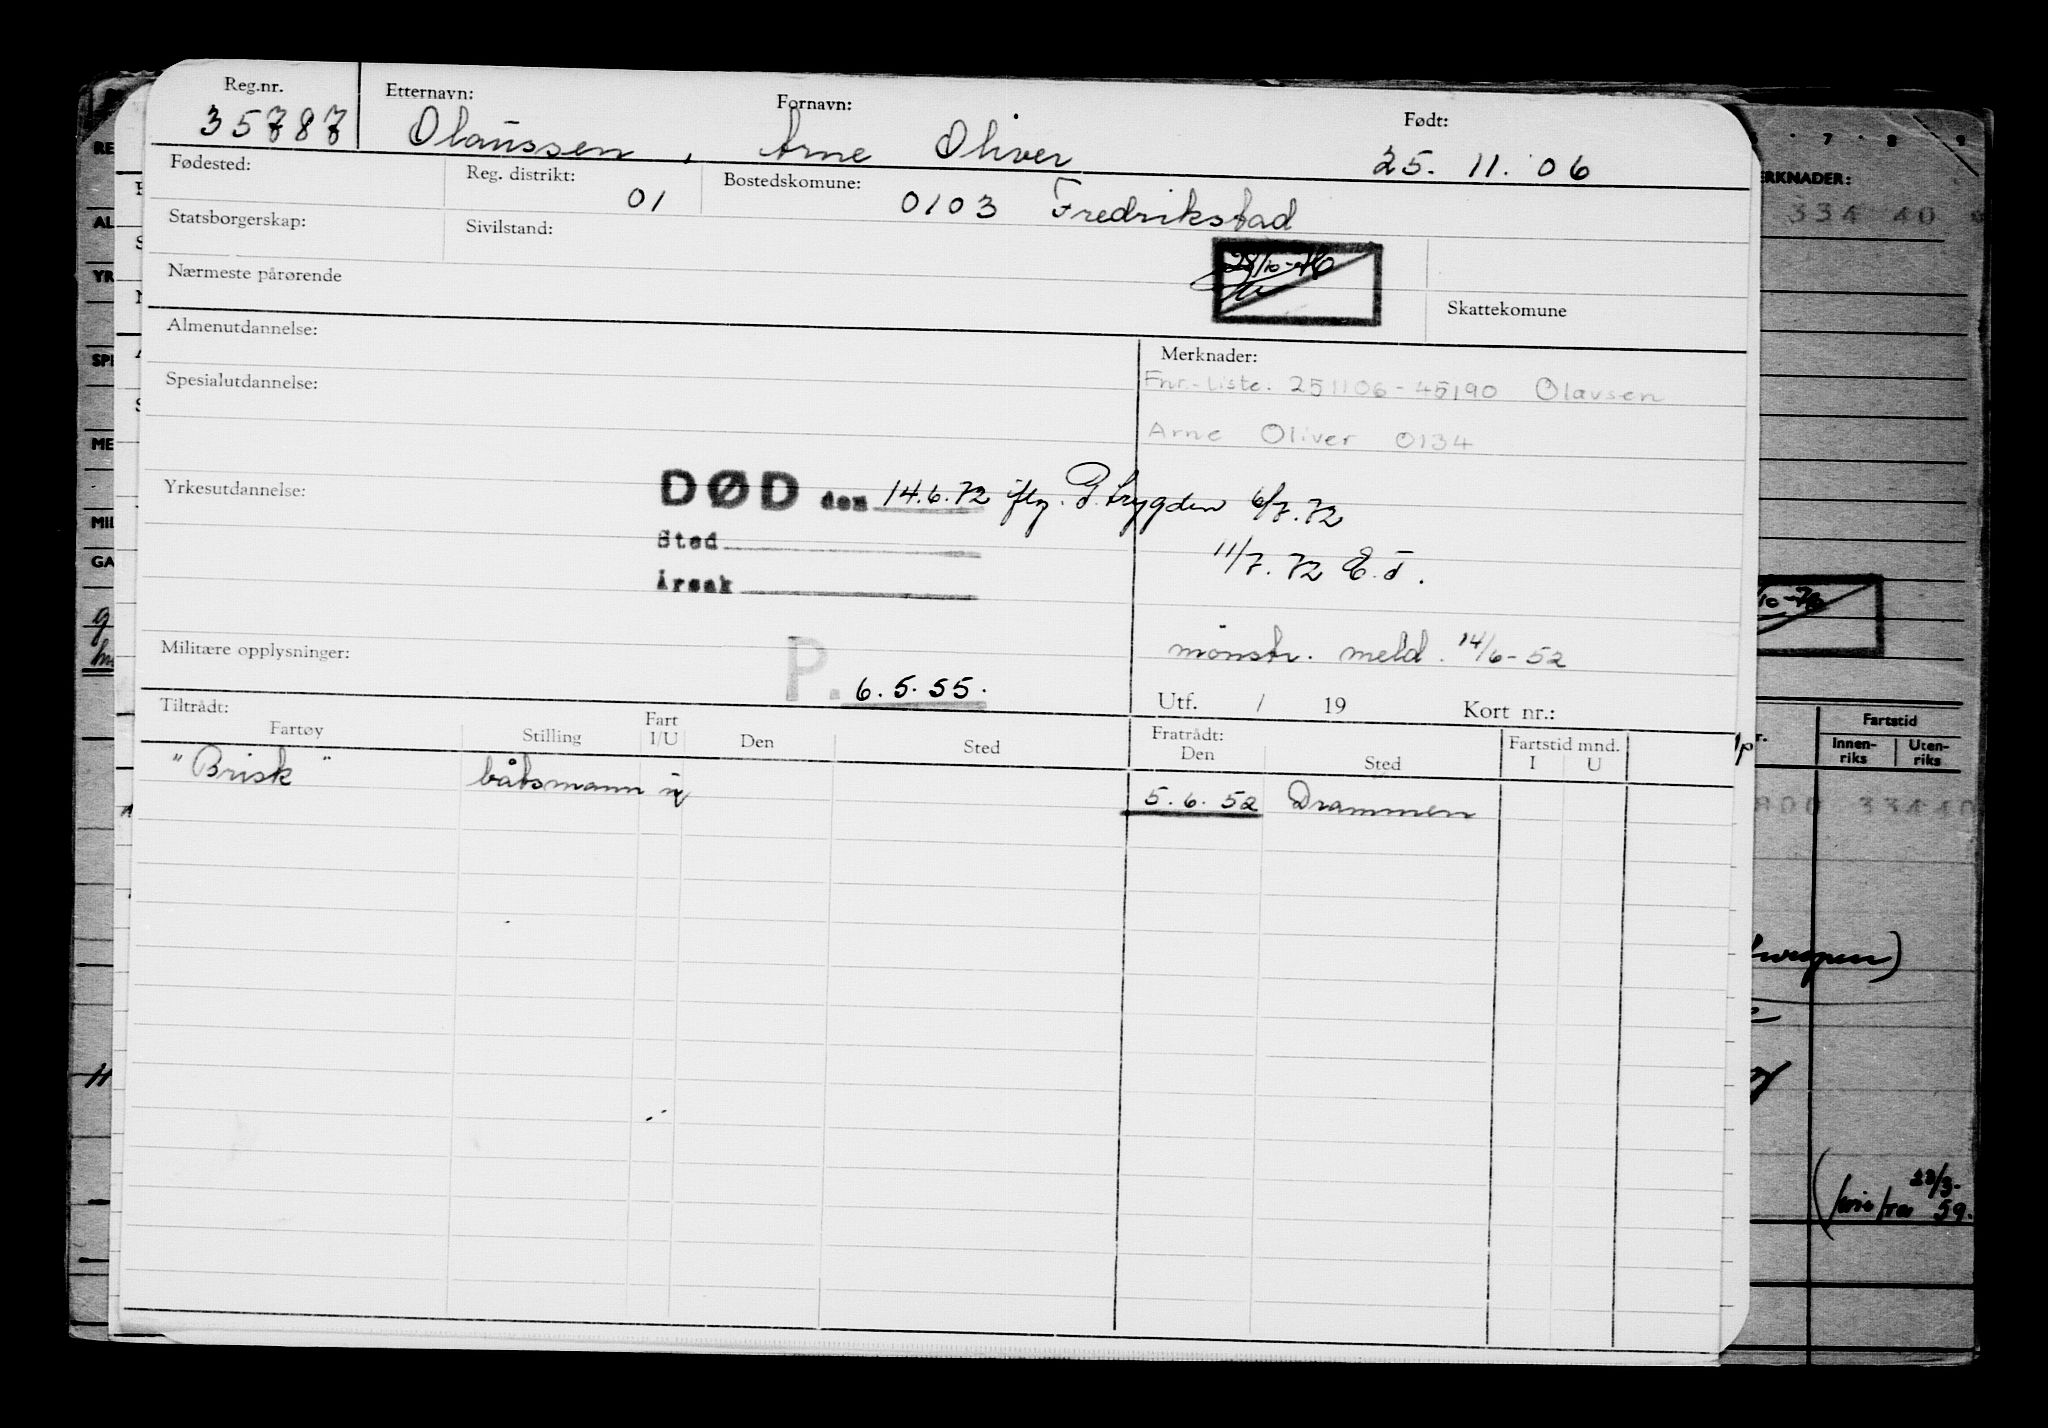 Reg.nr. Etternavn: Fornavn: Født:
35787 Olaussen, Arne Oliver 25. 11. 06
Fødested: Reg. distrikt: 01 Bostedskomune: 0103 Fredrikstad
Statsborgerskap: Sivilstand:
Nærmeste pårørende
Skattekomune
Almenutdannelse: Merknader:
Fnr.-liste: 251106-45190 Olavsen
Spesialutdannelse:
Arne Oliver 0134
Yrkesutdannelse: DØD den 14.6.72 iflg. P.trygden 6/7.72
Sted 11/7.72 E.T.
Årsak
Militære opplysninger: mönstr. meld. 14/6-52
P. 6.5.55.
Utf. / 19 Kort nr.:
Tiltrådt: Fratrådt:
Fartøy Stilling Fart I/U Den Sted Den Sted Fartstid mnd. I U
"Brisk" båtsmann 5.6.52 Drammen
7 8 9
RKNADER:
334 40
Fartstid
Innen-riks Uten-riks
334 40
23/3-
59.